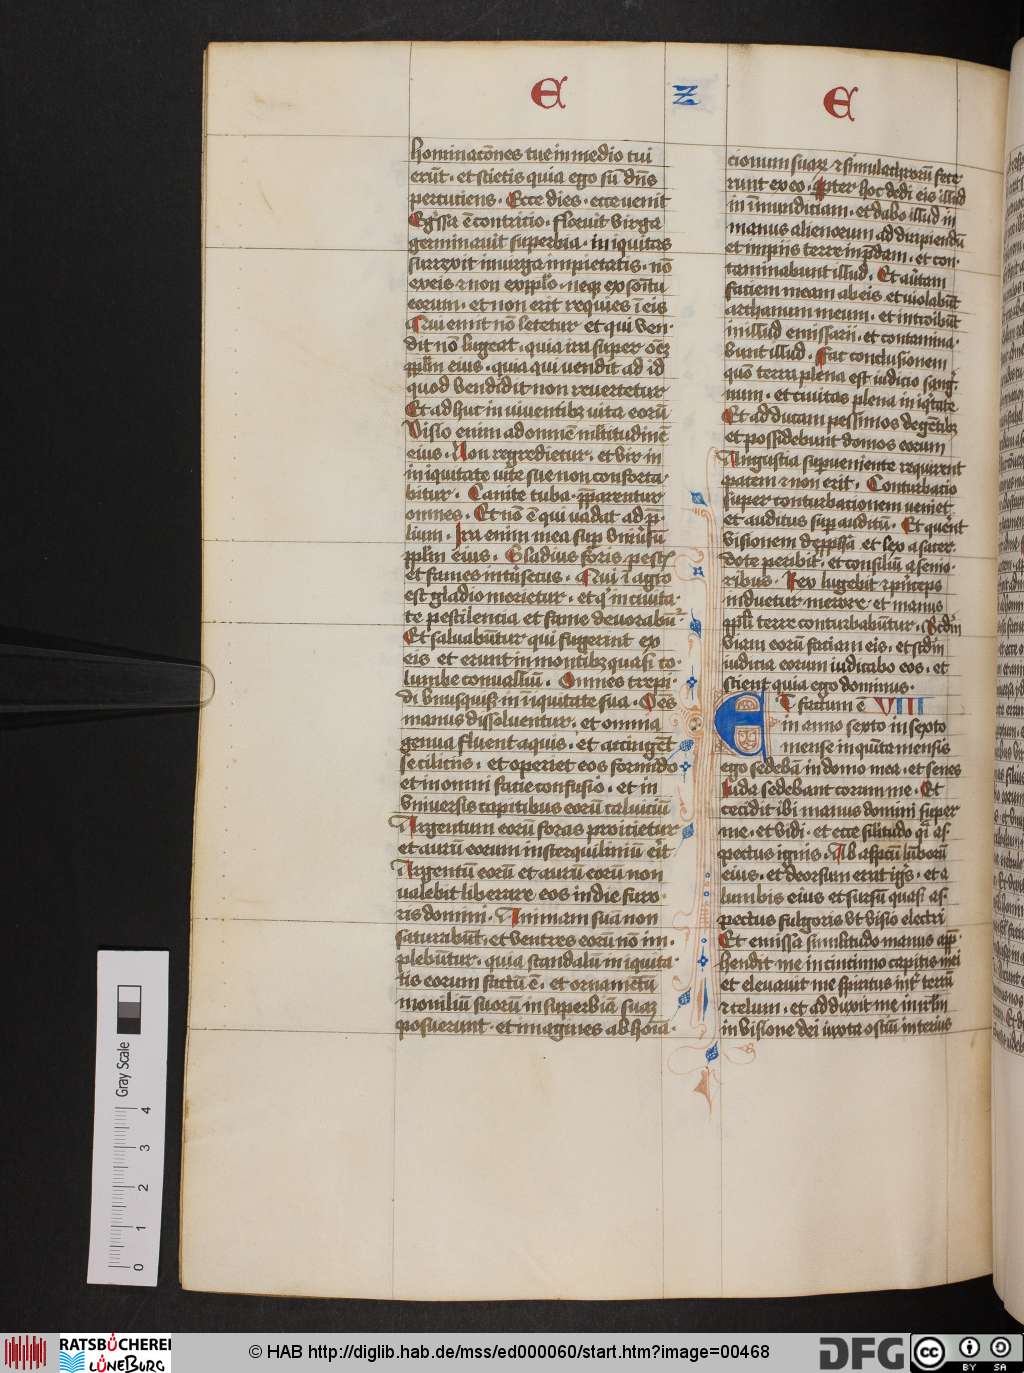 E z E
hominacōnes tue in medio tui
erūt . et scietis quia ego sū dn̄s
percutiens . Ecce dies . ecce uenit
Egressa ē contricio . floruit virga
germinauit superbia . iniquitas
surrexit in uirga impietatis . nō
ex eis ⁊ non ex pp̄lo . neqꝫ ex sonitu
eorum . et non erit requies ī eis
Qui emit nō letetur et qui ven-
dit nō lugeat . quia ira super oēꝫ
pp̄lm eius . quia qui uendit ad id
quod vendidit non reuertetur
Et adhuc in uiuentibꝫ uita eorū
Visio enim ad omnē mltitudinē
eius . Non regredietur . et vir in
iniquitate uite sue non conforta-
bitur . Canite tuba . preparentur
omnes . Et nō ē qui uadat ad p̄-
lium . Ira enim mea sup vniūsū
pp̄lm eius . Gladius foris pestis
et fames intrīsecus . Qui ī agro
est gladio morietur . et qi in ciuita-
te pestilencia et fame deuorabūt᷑
Et saluabūtur qui fugerint ex
eis et erunt in montibꝫ quasi co-
lumbe conuallium . Omnes trepi-
di vnusquisqꝫ in īiquitate sua . Oēs
manus dissoluentur . et omnia
genua fluent aquis . et accingēt
se ciliciis . et operiet eos formido
et in omni facie confusio . et in
vniuersis capitibus eorū caluiciū
Argentum eorū foras proicietur
et aurū eorum in sterquiliniū eīt
Argentū eorū et aurū eorū non
ualebit liberare eos in die furo-
ris domini . Animam suā non
saturabūt . et ventres eorū nō im-
plebūtur . quia scandalū iniquita-
tis eorum factū ē . et ornamētū
moniliū suorū in superbiā suaꝫ
posuerunt . et imagines abhoīa-
cionum suaꝝ ⁊ simulachrorū fece
runt ex eo . Apter hoc dedi eis illud
in īmundiciam . et dabo illud in
manus alienorum ad diripiendū
et impiis terre in p̄dam . et con-
taminabunt illud . Et aūtam
faciem meam ab eis et uiolabūt
archanum meum . et introibūt
in illud emissarii . et contamina-
bunt illud . Fac conclusionem
quō terra plena est iudicio sang̃-
num . et ciuitas plena iniq̇tate
Et adducam pessimos de gētibꝫ
et possidebunt domos eorum
Angustia superueniente requirent
pacem ⁊ non erit . Conturbacio
super conturbacionem veniet
et auditus sup auditū . Et querēt
visionem de ꝓpħa et lex a sacer-
dote peribit . et consiliū a senio-
ribus . Rex lugebit ⁊ princeps
induetur merore et manus
pp̄li terre conturbabūtur . Scdm̄
viam eorū faciam eis . et scdm̄
iudicia eorum iudicabo eos . et
scient quia ego dominus .
Et factum ē VIII
in anno sexto in sexto
mense in quīta mensis
ego sedebā in domo mea . et senes
Iuda sedebant coram me . Et
cecidit ibi manus domini super
me . et vidi . et ecce silitudo qi as-
pectus ignis . Ab aspctu lūborū
eius . et deorsum erat igis . et a
lumbis eius et sursū quasi as-
pectus fulgoris vt visio electri
Et emissa similitudo manus app-
hendit me in cincinno capitis mei
et eleuauit me spiritus intr̃ terrā
⁊ celum . et adduxit me in irlm̄
in visione dei iuxta ostiū interius
Gray Scale
0 1 2 3 4
RATSBÜCHEREI
LÜNEBURG
© HAB http://diglib.hab.de/mss/ed000060/start.htm?image=00468
DFG
cc BY SA